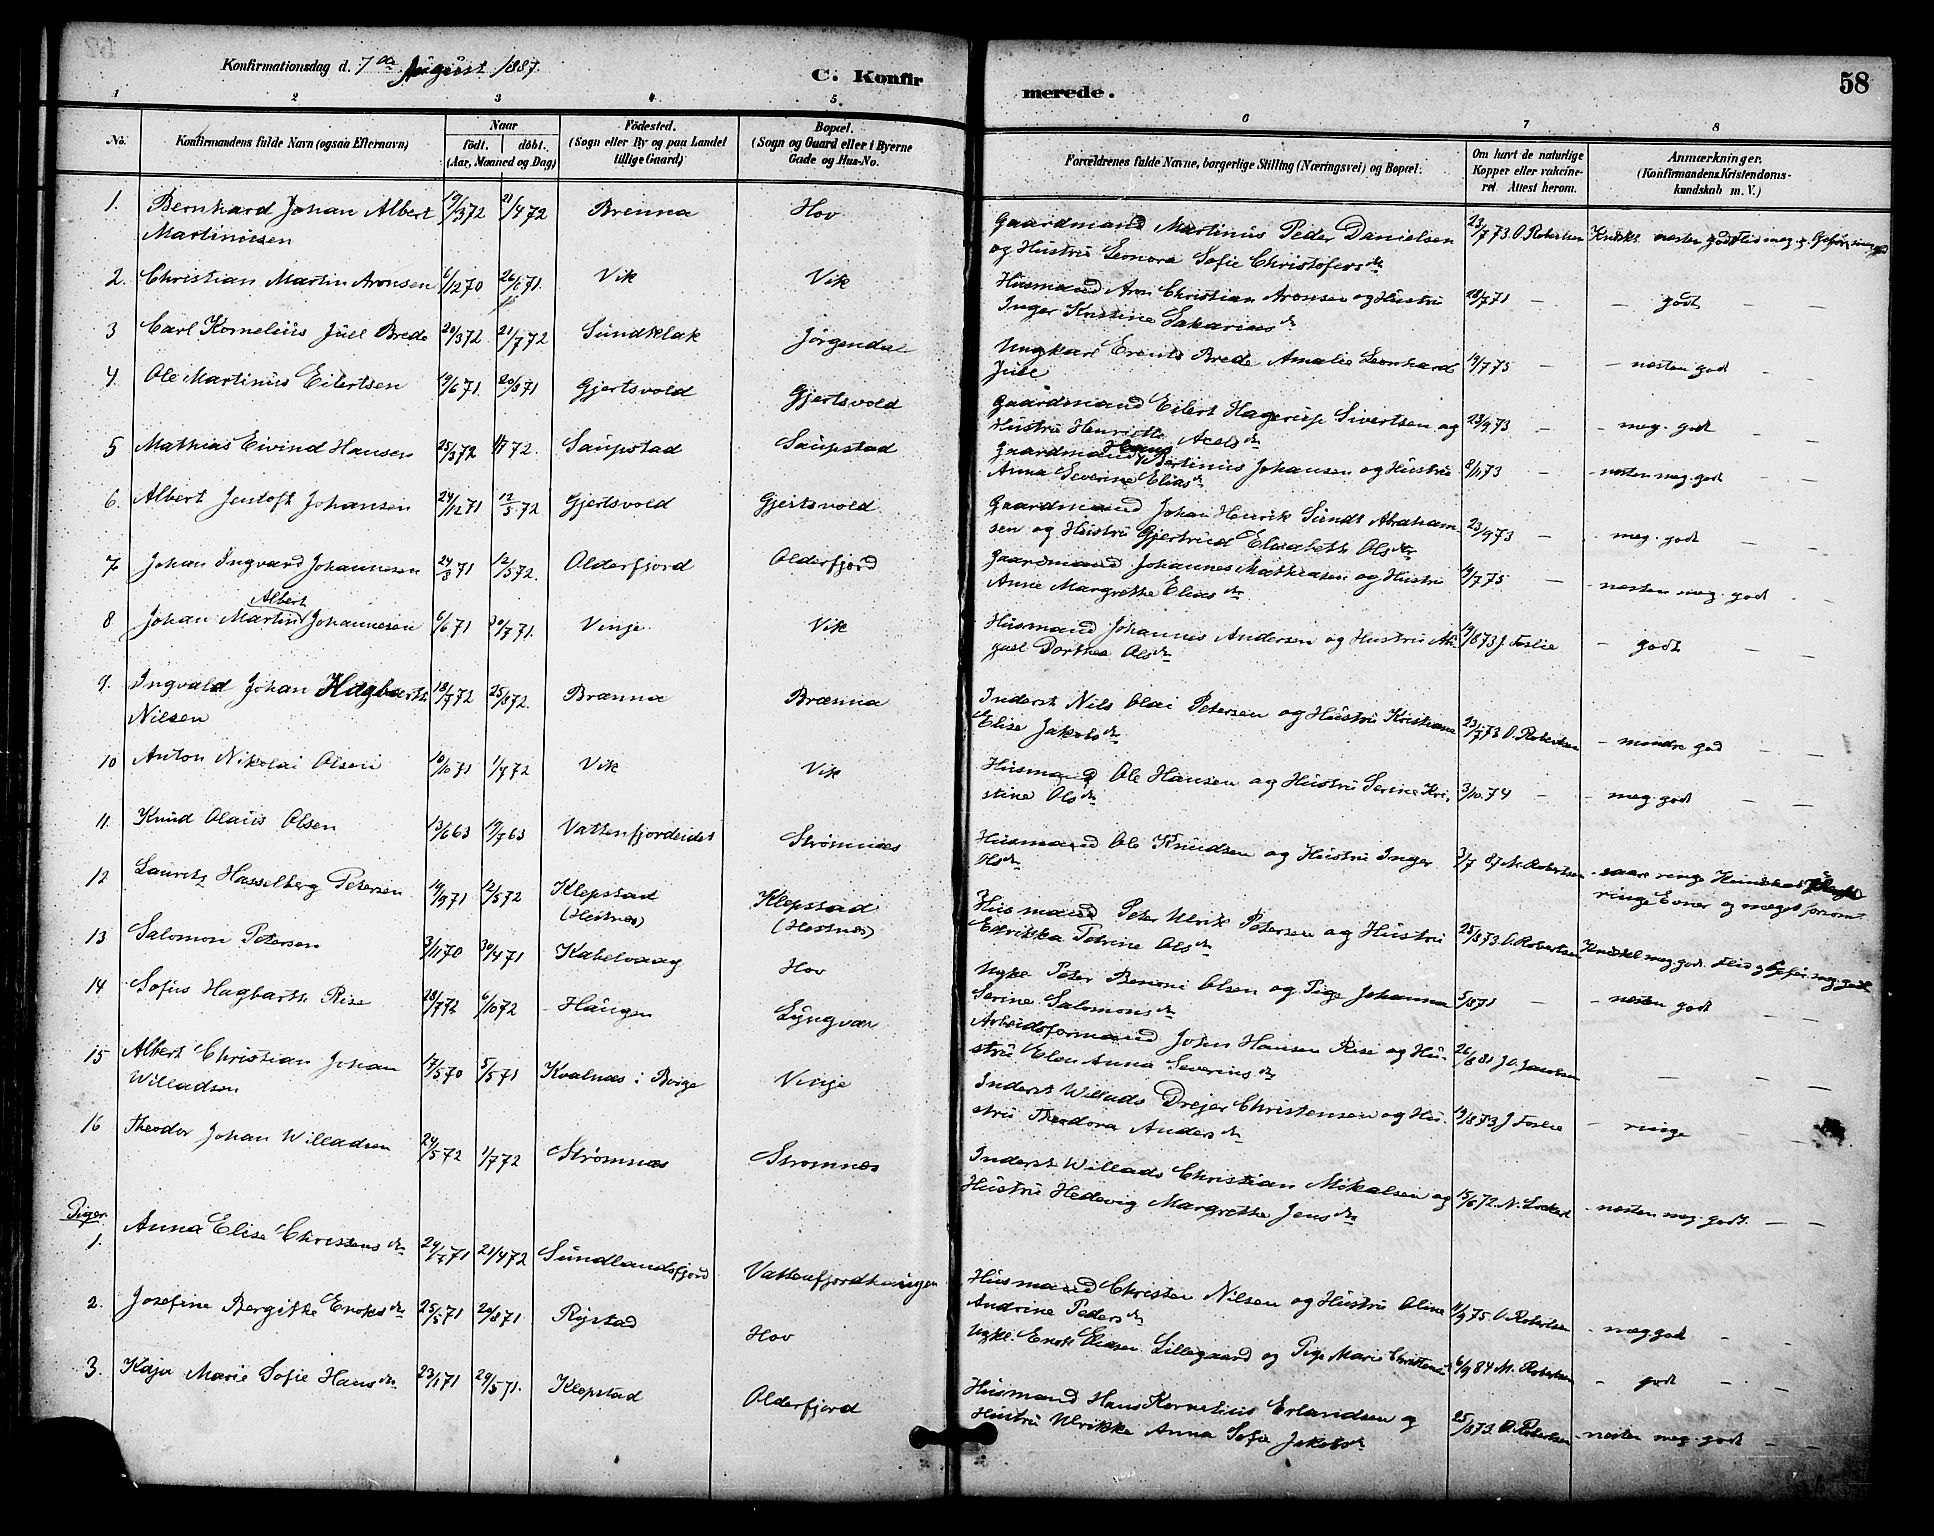 58
Konfirmationsdag d. 7de August 1887.
C. Konfirmerede.
1 2 3 4 5. 6 7 8
No. Konfirmandens fulde Navn (ogsaa Efternavn) Naar født. døbt. (Aar, Maaned og Dag) Fødested. (Sogn eller By og paa Landet tillige Gaard) Bopæl. (Sogn og Gaard eller i Byerne Gade og Hus-No. Forældrenes fulde Navne, borgerlige Stilling (Næringsvei) og Bopæl. Om havt de naturlige Kopper eller vakcineret. Attest herom. Anmærkninger. (Konfirmandens Kristendomskundskab m. V.)
1. Bernhard Johan Albert 19/3 72 21/4 72 Brenna Hov Gaardmand Martinus Peder Danielsen 23/7 73 O. Robertsen Kundsk. nesten godt Flid meg. g.
Martinussen og Hustru Leonora Sofie Christofersdr
2. Christian Martin Aronsen 6/12 70 26/1 71. Vik Vik Husmand Aron Christian Aronsen og Hustru 28/7 71 — — godt — —
Inger Kristine Sakariasdr
3 Carl Kornelius Juel Brede 20/3 72 21/7 72 Sundklak Jørgendal Ungkarl Erents Brede Amalie Leonhard 19/7 75 — — nesten god — —
Juel
4. Ole Martinus Eilertsen 19/6 71. 20/8 71 Gjertsvold Gjertsvold Gaardmand Eilert Hagerup Sivertsen og 23/9 73 — — meg. godt — —
Hustru Henriette Acelsdr
5 Mathias Eivind Hansen 25/3 72 72. Saupstad Saupstad Gaardmand Hans Martinus Johansen og Hustru 8/11 73 — nesten meg. godt — —
Anna Severine Eliasdr
6. Albert Jentoft Johansen 24/12 71 12/5 72 Gjertsvold Gjertsvold Gaardmand Johan Henrik Sundt Abraham- 23/9 73 — — meg. godt — —
sen og Hustru Gjertrud Elisabeth Olsdr
7. Johan Ingvard Johannesen 24/8 71 12/5 72. Olderfjord Olderfjord Gaardmand Johannes Mathiasen og Hustru 19/7 75 — nesten meg. god — —
Anne Margrethe Eliasdr
8 Johan Martin Albert Johannesen 6/6 71 30/7 71. Vinje Vik Husmand Johannes Andersen og Hustru Abi- 19/8 73 J Foslie — godt — —
gael Dorthea Olsdr
9. Ingvald Johan Hagbarth 18/7 72 25/8 72. Brænna Brænna Inderst Nils Olai Petersen og Hustru Kristiane 23/7 73 O. Robertsen — mindre god — —
Nilsen Elise Jakobsdr
10 Anton Nikolai Olsen 10/10 71 1/4 72 Vik Vik Husmand Ole Hansen og Hustru Serine Kri- 3/10. 74 — — meg. godt — —
stine Olsdr
11. Knud Olaus Olsen 13/6 63 19/7 63 Vattenfjordeidet Strømnæs Husmand Ole Knudsen og Hustru Inger 3/7 87 M. Robertsen saare ringe Kundskab
Olsdr ringe Evner og meget forsømt
12 Lauritz Hasselberg Petersen 14/9 71 12/5 72 Klepstad Klepstad Husmand Peter Ulrik Petersen og Hustru 25/8 73. O. Robertsen Kundsk. meg. god. Flid
(Hestnes) (Hestnes) Edrikka Petrine Olsdr
13 Salomon Petersen 3/11 70 30/4 71 Kabelvaag Hov Ugke Peter Benoni Olsen og Pige Johanna 5/8 71 — — nesten godt — —
Serine Salomonsdr
14 Sofus Hagbarth Rise 28/7 72 6/10 72 Haugen Lyngvær Arbeidsformand John Hansen Rise og Hu- 26/8 81 J.O. Jacobsen — — —
stru Elen Anna Severinsdr
15 Albert Christian Johan 17/5 70 5/5 71 Kvalnæs i Borge Vinje Inderst Willads Drejer Christensen og Hu- 19/8 73 J Foslie — ringe — —
Willadsen stru Theodora Andersdr
16 Theodor Johan Willadsen 24/5 72 1/7 72 Strømnæs Strømnæs Inderst Willads Christian Mikalsen og 15/6 72 N. Lockert — nesten meg. godt. — —
Hustru Hedevig Margrethe Jensdr
Piger.
1. Anna Elise Christensdr 71 21/4 72 Sundlandsfjord Vattenfjordhaugen Husmand Christen Nilsen og Hustru Oline 75. O. Robertsen — meg god —
Andrine Pedersdr
2. Josefine Bergitte Enoksdr 25/5 71 20/8 71 Rystad Hov Ugkl. Enok Eliasen Lillegaard og Pige Marie 6/9 84 M. Robertsen — godt — —
3. Kaja Marie Sofie Hansdr 23/1 71 29/5 71. Klepstad Olderfjord Husmand Hans Kornelius Erlandsen og 25/8 73. O. Robertsen — nesten meg. godt — —
Hustru Ulrikke Anna Sofie Jakobsdr